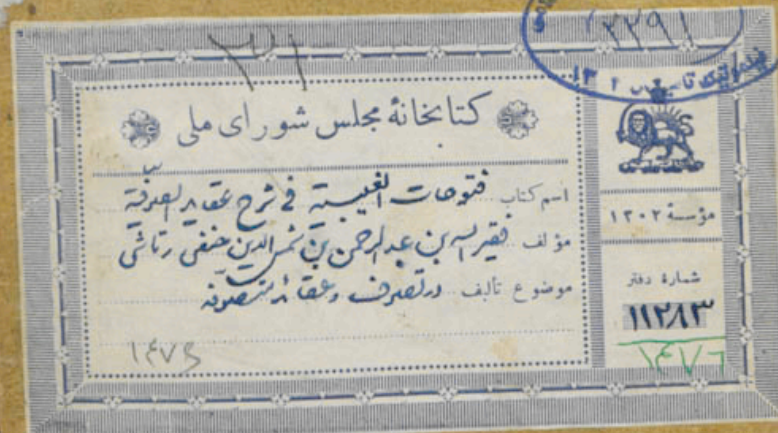 ۲۲۹۱
کتابخانهٔ مجلس شورای ملی
اسم کتاب فتوحات الغیبیة فی شرح عقاید الصوفیة
مؤلف فقیر الله بن عبدالرحمن بن شمس الدین حنفی
موضوع تألیف در تصوف و عقائد متصوفه
۱۴۷۶
مؤسسهٔ ۱۳۰۲
شمارهٔ دفتر
۱۱۲۸۳
۱۴۷۶